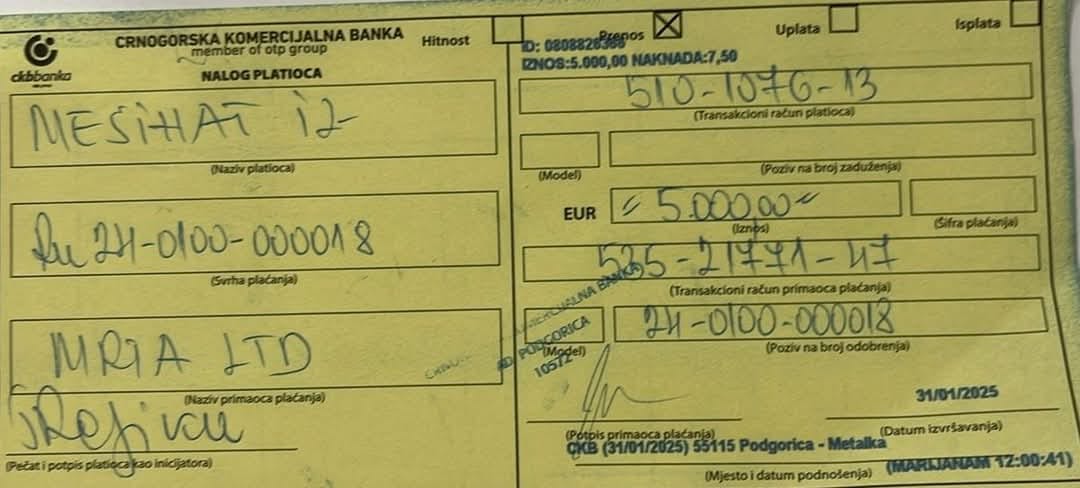 ckbbanka
CRNOGORSKA KOMERCIJALNA BANKA
member of otp group
Hitnost
NALOG PLATIOCA
MESIHAT IZ
(Naziv platioca)
Ru 24-0100-000018
(Svrha plaćanja)
MRIA LTD
(Naziv primaoca plaćanja)
(Pečat i potpis platioca kao inicijatora)
Prenos
Uplata
Isplata
ID: 0808826366
IZNOS:5.000,00 NAKNADA:7,50
510-1076-13
(Transakcioni račun platioca)
(Model)
(Poziv na broj zaduženja)
EUR
5.000,00
(Iznos)
(Šifra plaćanja)
535-21771-47
(Transakcioni račun primaoca plaćanja)
24-0100-000018
(Model)
(Poziv na broj odobrenja)
KOMERCIJALNA BANKA
AD PODGORICA
10572
31/01/2025
(Potpis primaoca plaćanja)
(Datum izvršavanja)
CKB (31/01/2025) 55115 Podgorica - Metalka
(Mjesto i datum podnošenja)
(MARIJANAM 12:00:41)